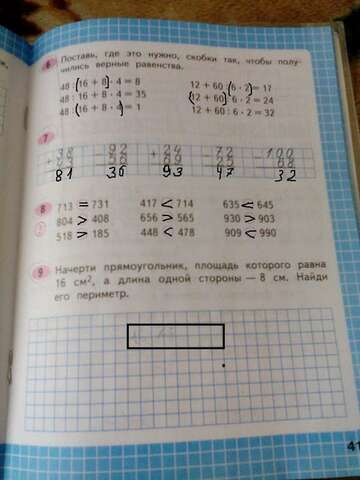 6 Поставь, где это нужно, скобки так, чтобы полу-
чились верные равенства.
48 : (16 + 8) · 4 = 8 12 + 60 : (6 · 2) = 17
48 : 16 + 8 · 4 = 35 (12 + 60) : 6 · 2 = 24
48 : (16 + 8 · 4) = 1 12 + 60 : 6 · 2 = 32
7
38 92 24 72 100
+ 43 - 56 + 69 - 25 - 68
81 36 93 47 32
8 713 = 731 417 < 714 635 < 645
804 > 408 656 > 565 930 > 903
518 > 185 448 < 478 909 < 990
9 Начерти прямоугольник, площадь которого равна
16 см², а длина одной стороны — 8 см. Найди
его периметр.
41